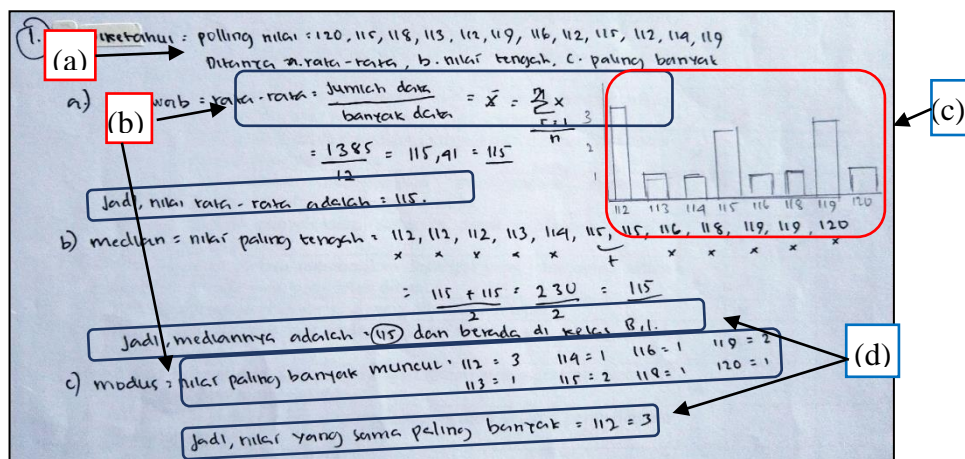 1. iketahui = polling nilai = 120, 115, 118, 113, 112, 119, 116, 112, 115, 112, 114, 119
(a)
Ditanya a. rata-rata, b. nilai tengah, c. paling banyak
a) wab = rata-rata = jumlah data / banyak data = x̄ = n Σ x i=1 / n
(b)
(c)
3
2
1
112 113 114 115 116 118 119 120
= 1385 / 12 = 115,41 = 115
Jadi, nilai rata-rata adalah = 115.
b) median = nilai paling tengah = 112, 112, 112, 113, 114, 115, 115, 116, 118, 119, 119, 120
x x x x x + x x x x x
= 115 + 115 / 2 = 230 / 2 = 115
Jadi, mediannya adalah = 115 dan berada di kelas B,1.
(d)
c) modus = nilai paling banyak muncul = 112 = 3 114 = 1 116 = 1 119 = 2
113 = 1 115 = 2 118 = 1 120 = 1
Jadi, nilai yang sama paling banyak = 112 = 3